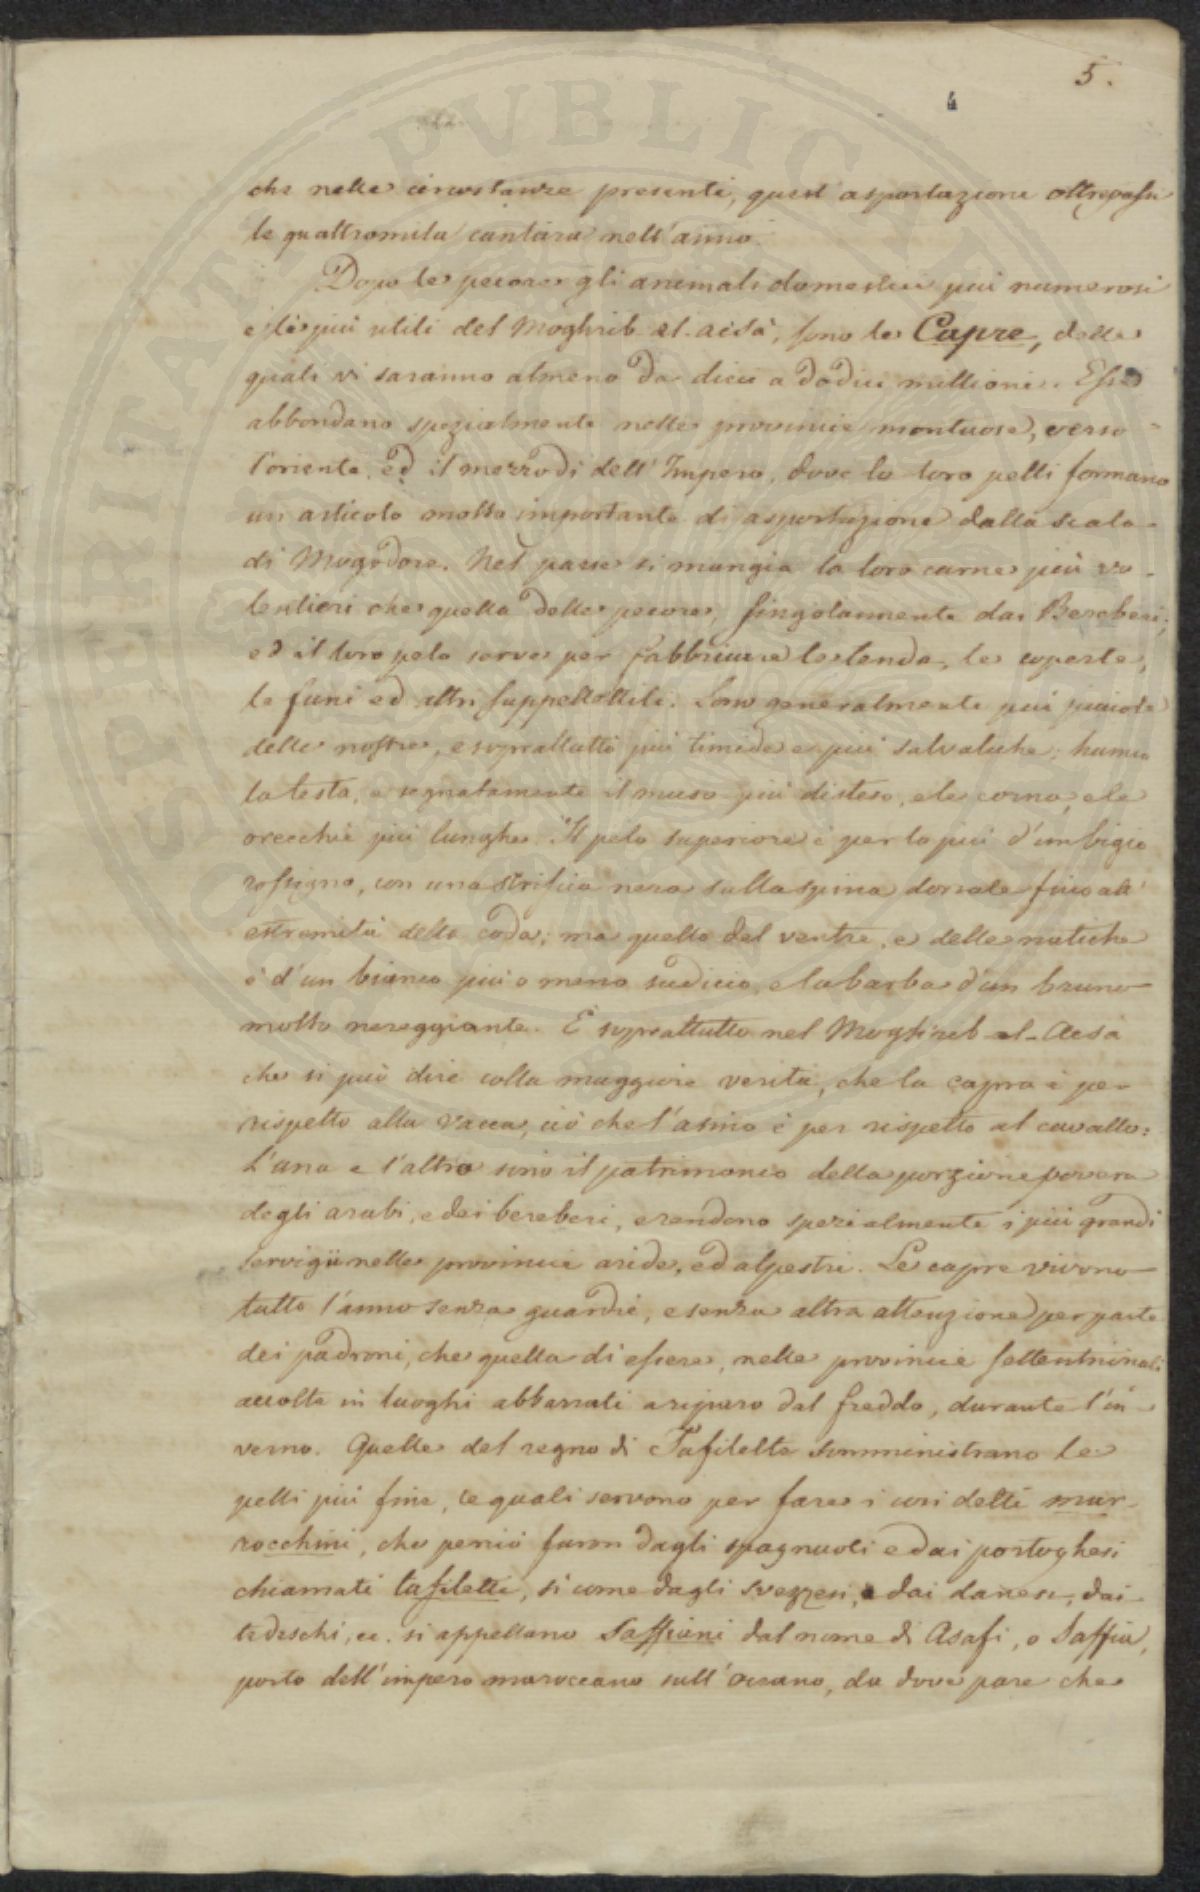 5.
che nelle circostanze presenti, quest'asportazione oltrepassi
le quattromila cantára nell'anno.
Dopo le pecore gli animali domestici piú numerosi
e li piú utili del Moghrib-el-acsà, sono le Capre, delle
quali vi saranno almeno da dieci a dodici millioni. Esse
abbondano spezialmente nelle provincie montuose, verso
l'oriente, ed il mezzodi dell'Impero, dove le loro pelli formano
un articolo molto importante di asportazione dalla scala
di Mogodore. Nel paese si mangia la loro carne piú vo-
lentieri che quella delle pecore, singolarmente dai Bereberi;
ed il loro pelo serve per fabbricare le tende, le coperte,
le funi ed altri suppellettili. Sono generalmente piú picciole
delle nostre, e soprattutto piú timide e piú salvatiche; hanno
la testa, e segnatamente il muso piú disteso, e le corna, e le
orecchie piú lunghe. Il pelo superiore è per lo piú d'un bigio
rossigno, con una striscia nera sulla spina dorsale fino all'
estremità della coda; ma quello del ventre, e delle natiche
è d'un bianco piú o meno sudicio, e la barba d'un bruno
molto nereggiante. È soprattutto nel Moghreb-el-Acsà
che si puó dire colla maggiore verità, che la capra è per
rispetto alla vacca, ció che l'asino è per rispetto al cavallo:
L'una e l'altro sono il patrimonio della porzione povera
degli arabi, e dei bereberi, e rendono spezialmente i piú grandi
servigii nelle provincie aride, ed alpestri. Le capre vivono
tutto l'anno senza guardie, e senza altra attenzione per parte
dei padroni, che quella di essere, nelle provincie settentrionali
accolte in luoghi abbarrati a riparo dal freddo, durante l'in-
verno. Quelle del regno di Tafilelte somministrano le
pelli piú fine, le quali servono per fare i cosi detti mar-
rocchini, che perció furon dagli spagnuoli e dai portoghesi
chiamati tafiletti, si come dagli svezzesi, e dai danesi, dai
tedeschi, ec. si appellano Saffiani dal nome di Asafi, o Saffia,
porto dell'impero maroccano sull'Oceano, da dove pare che
PROSPERITATI PVBLICAE